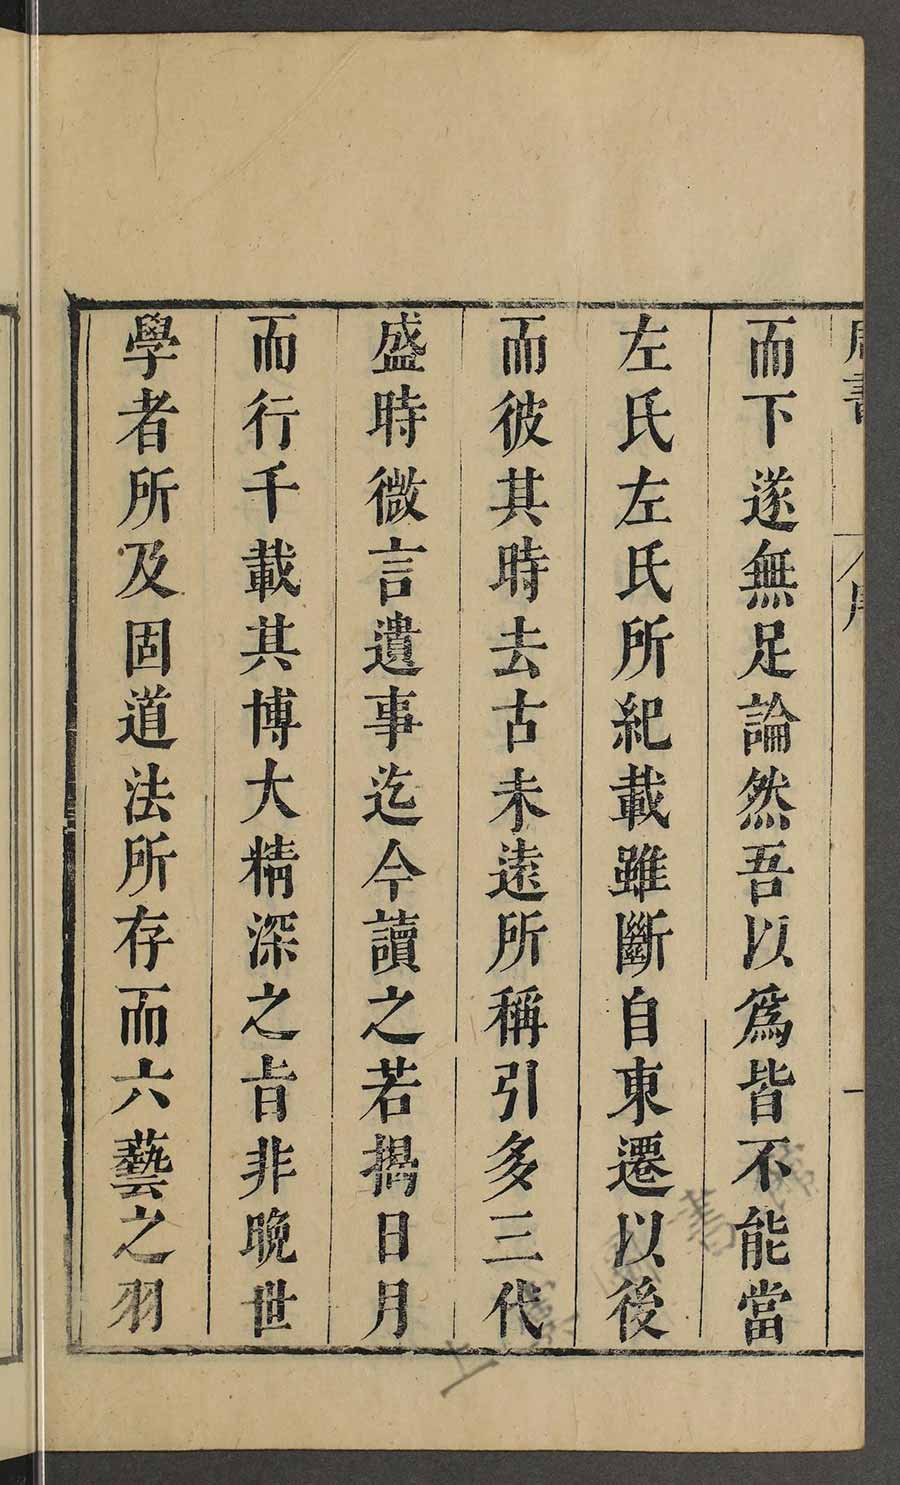 而下遂無足論然吾以爲皆不能當
左氏左氏所紀載雖斷自東遷以後
而彼其時去古未遠所稱引多三代
盛時微言遺事迄今讀之若揭日月
而行千載其博大精深之㫖非晚世
學者所及固道法所存而六藝之羽